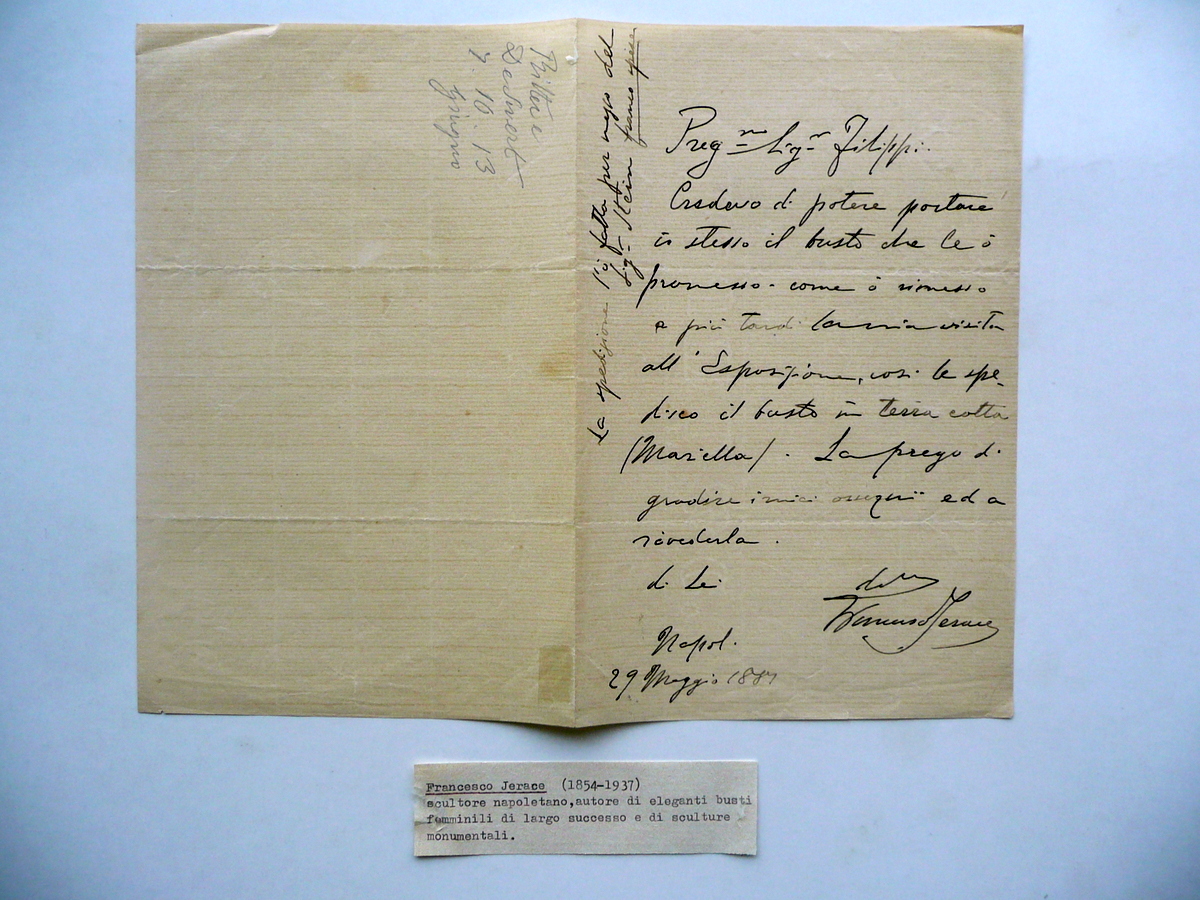 Preg.mo Sig.r Filippi.
Credevo di potere portare
io stesso il busto che le ò
promesso. come ò rimesso
a più tardi la mia visita
all'Esposizione, così le spe-
disco il busto in terra cotta
(Mariella). La prego di
gradire i miei ossequii ed a
rivederla.
di Lei
Francesco Jerace
Napoli
29 Maggio 1881
La spedizione l'ò fatta per mezzo del
Sig.r Stein franco
7. 16. 13
Francesco Jerace (1854-1937)
scultore napoletano,autore di eleganti busti
femminili di largo successo e di sculture
monumentali.